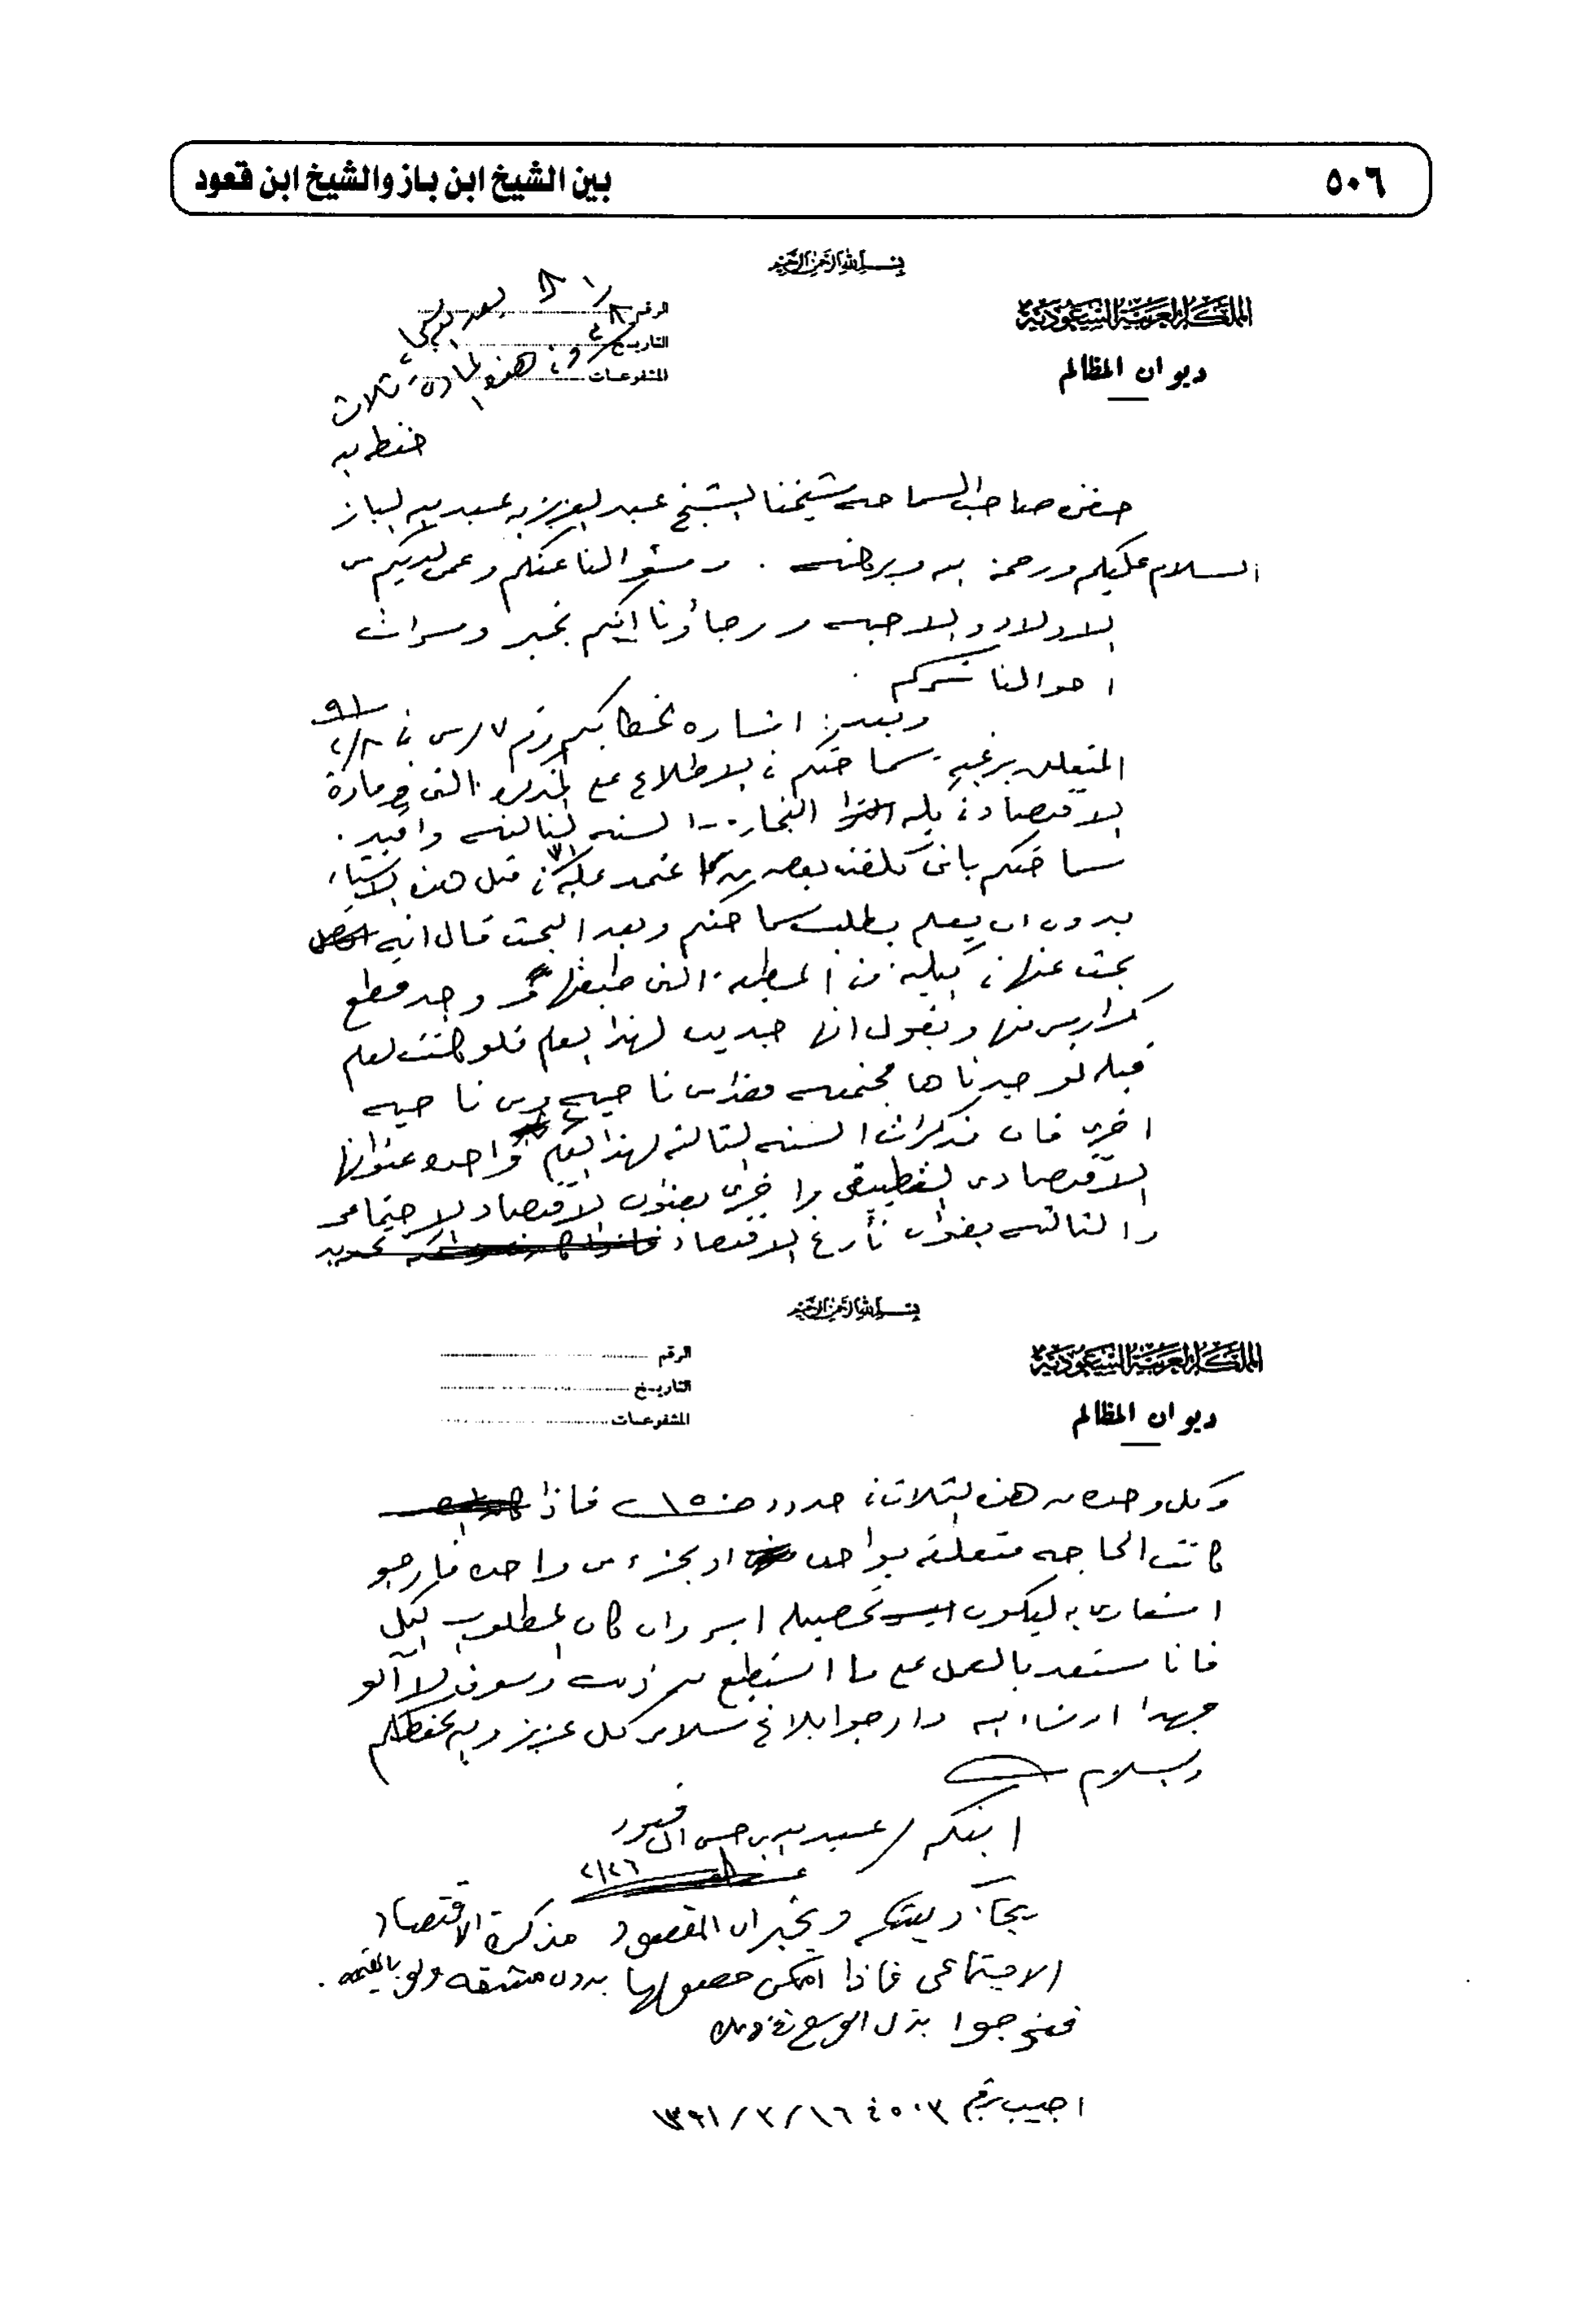 ٥٠٦ بين الشيخ ابن باز والشيخ ابن قعود
بسم الله الرحمن الرحيم
المملكة العربية السعودية
ديوان المظالم
الرقم
التاريخ
المشفوعات
هذه المادة ثلاث
فقط
حضرة صاحب السماحة شيخنا الشيخ عبد العزيز بن عبد الله الباز
السلام عليكم ورحمة الله وبركاته . وسؤالنا عنكم وعمن لديكم من
الاولاد والاحبة ورجاؤنا انكم بخير ومسرات
احوالنا تسركم .
وبعد: اشاره لخطابكم رقم ٧/س في
المتعلق برغبة سماحتكم في الاطلاع على المذكرة التي في مادة
الاقتصاد في كلية التجارة - السنة الثالثة وافيد
سماحتكم باني كلفت بعض من اعتمد عليه في مثل هذه الاشياء
بدون ان يعلم بطلب سماحتكم وبعد البحث قال انه
بحث عنها في كلية المطبعة التي طبعتها وجد قطع
كراريس منها ويقول انها جديدة لهذا العام فلو كانت لعام
قبله لوجدناها مجتمعه هذا من ناحية ومن ناحيه
اخرى فان مذكرات السنه الثالثه لهذا العام واحده عنوانها
الاقتصاد التطبيقي واخرى بعنوان الاقتصاد الاجتماعي
والثالثه بعنوان تأريخ الاقتصاد
بسم الله الرحمن الرحيم
المملكة العربية السعودية
ديوان المظالم
الرقم
التاريخ
المشفوعات
وكل وحده من هذه الثلاث في حدود فاذا
كانت الحاجه متعلقه بواحده او بجزء من واحده فارجو
اشعاري به ليكون تحصيله ايسر وان كان المطلوب الكل
فانا مستعد بالعمل على ما استطيع من ذلك وسوف لا آلو
جهدا ان شاء الله وارجو ابلاغ سلامي كل عزيز والله يحفظكم
والسلام
ابنكم / عبد الله بن حسن ال قعود
٢/٢٦
يجاب ويشكر ويخبر ان المقصود مذكرة الاقتصاد
الاجتماعي فاذا امكن حصولها بدون مشقه ولو بالقيمه .
فنرجوا بذل الوسع في ذلك
اجيب برقم ٤٥٠٣ ١٦/٣/١٣٩١